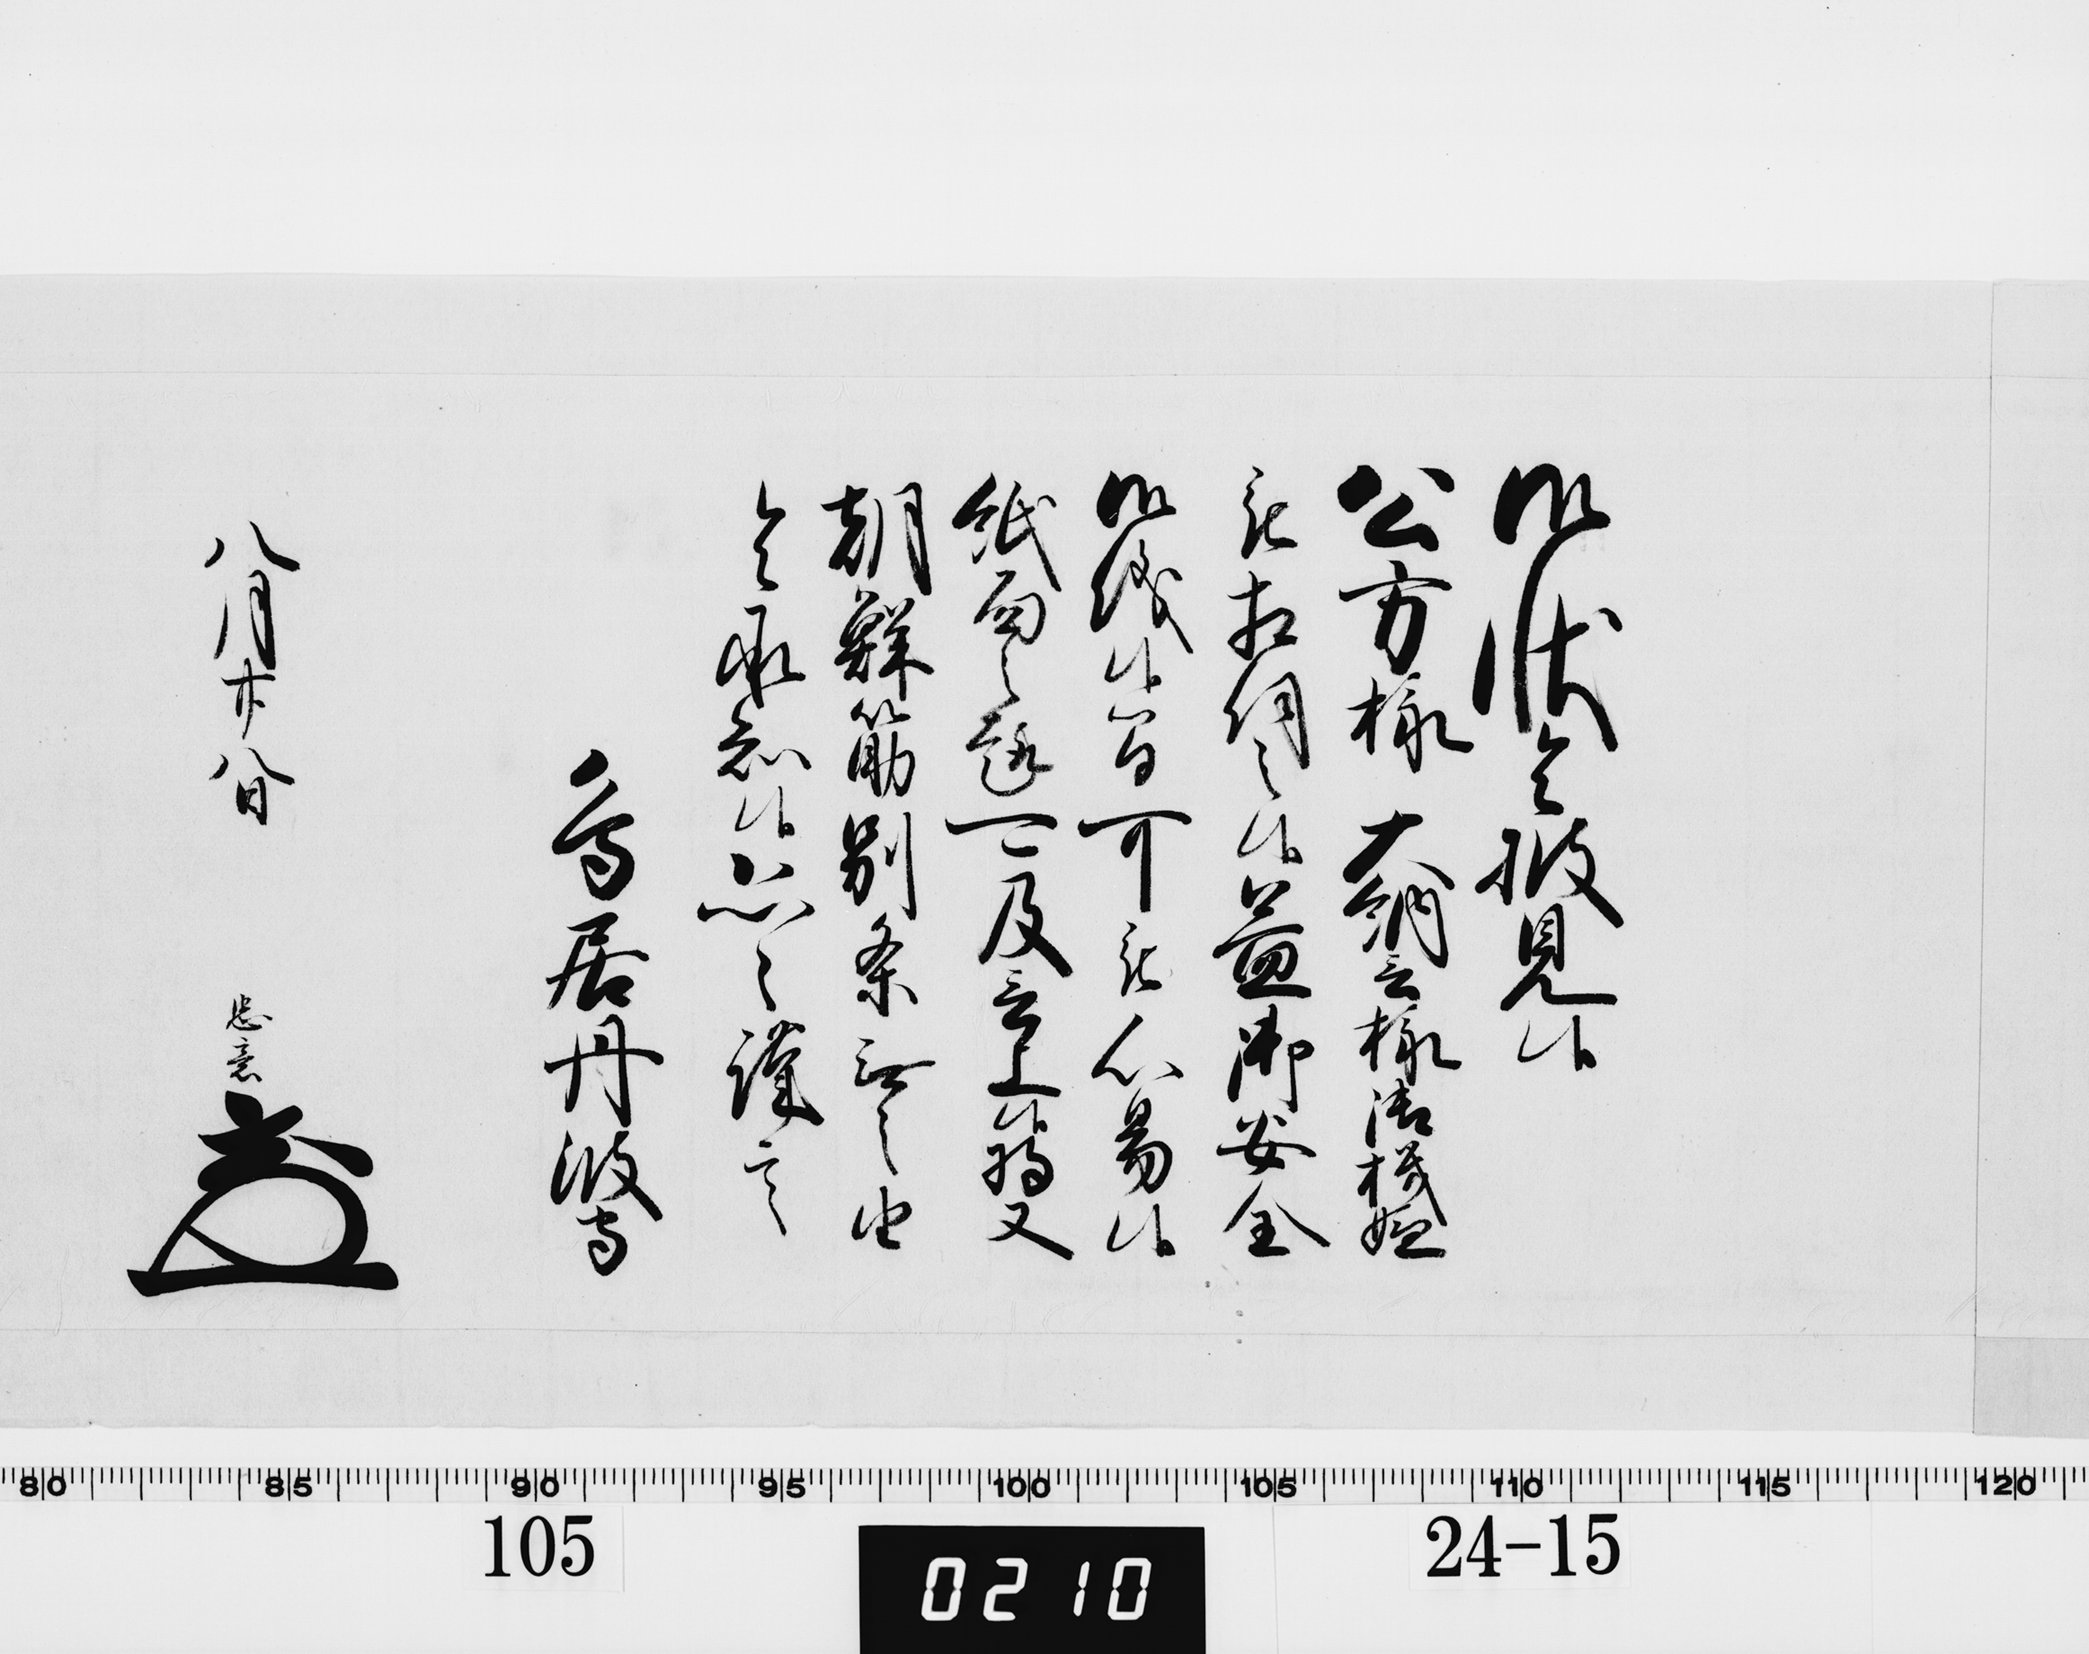 御状令披見候
公方様 大納言様御機嫌
被相伺之候益御安全
御儀候間可被心易候
紙面之趣一及言上候将又
朝鮮筋別条無之由
令承知候恐々謹言
鳥居丹波守
八月廿八日
忠意
80 85 90 95 100 105 110 115 120
105
24-15
0210